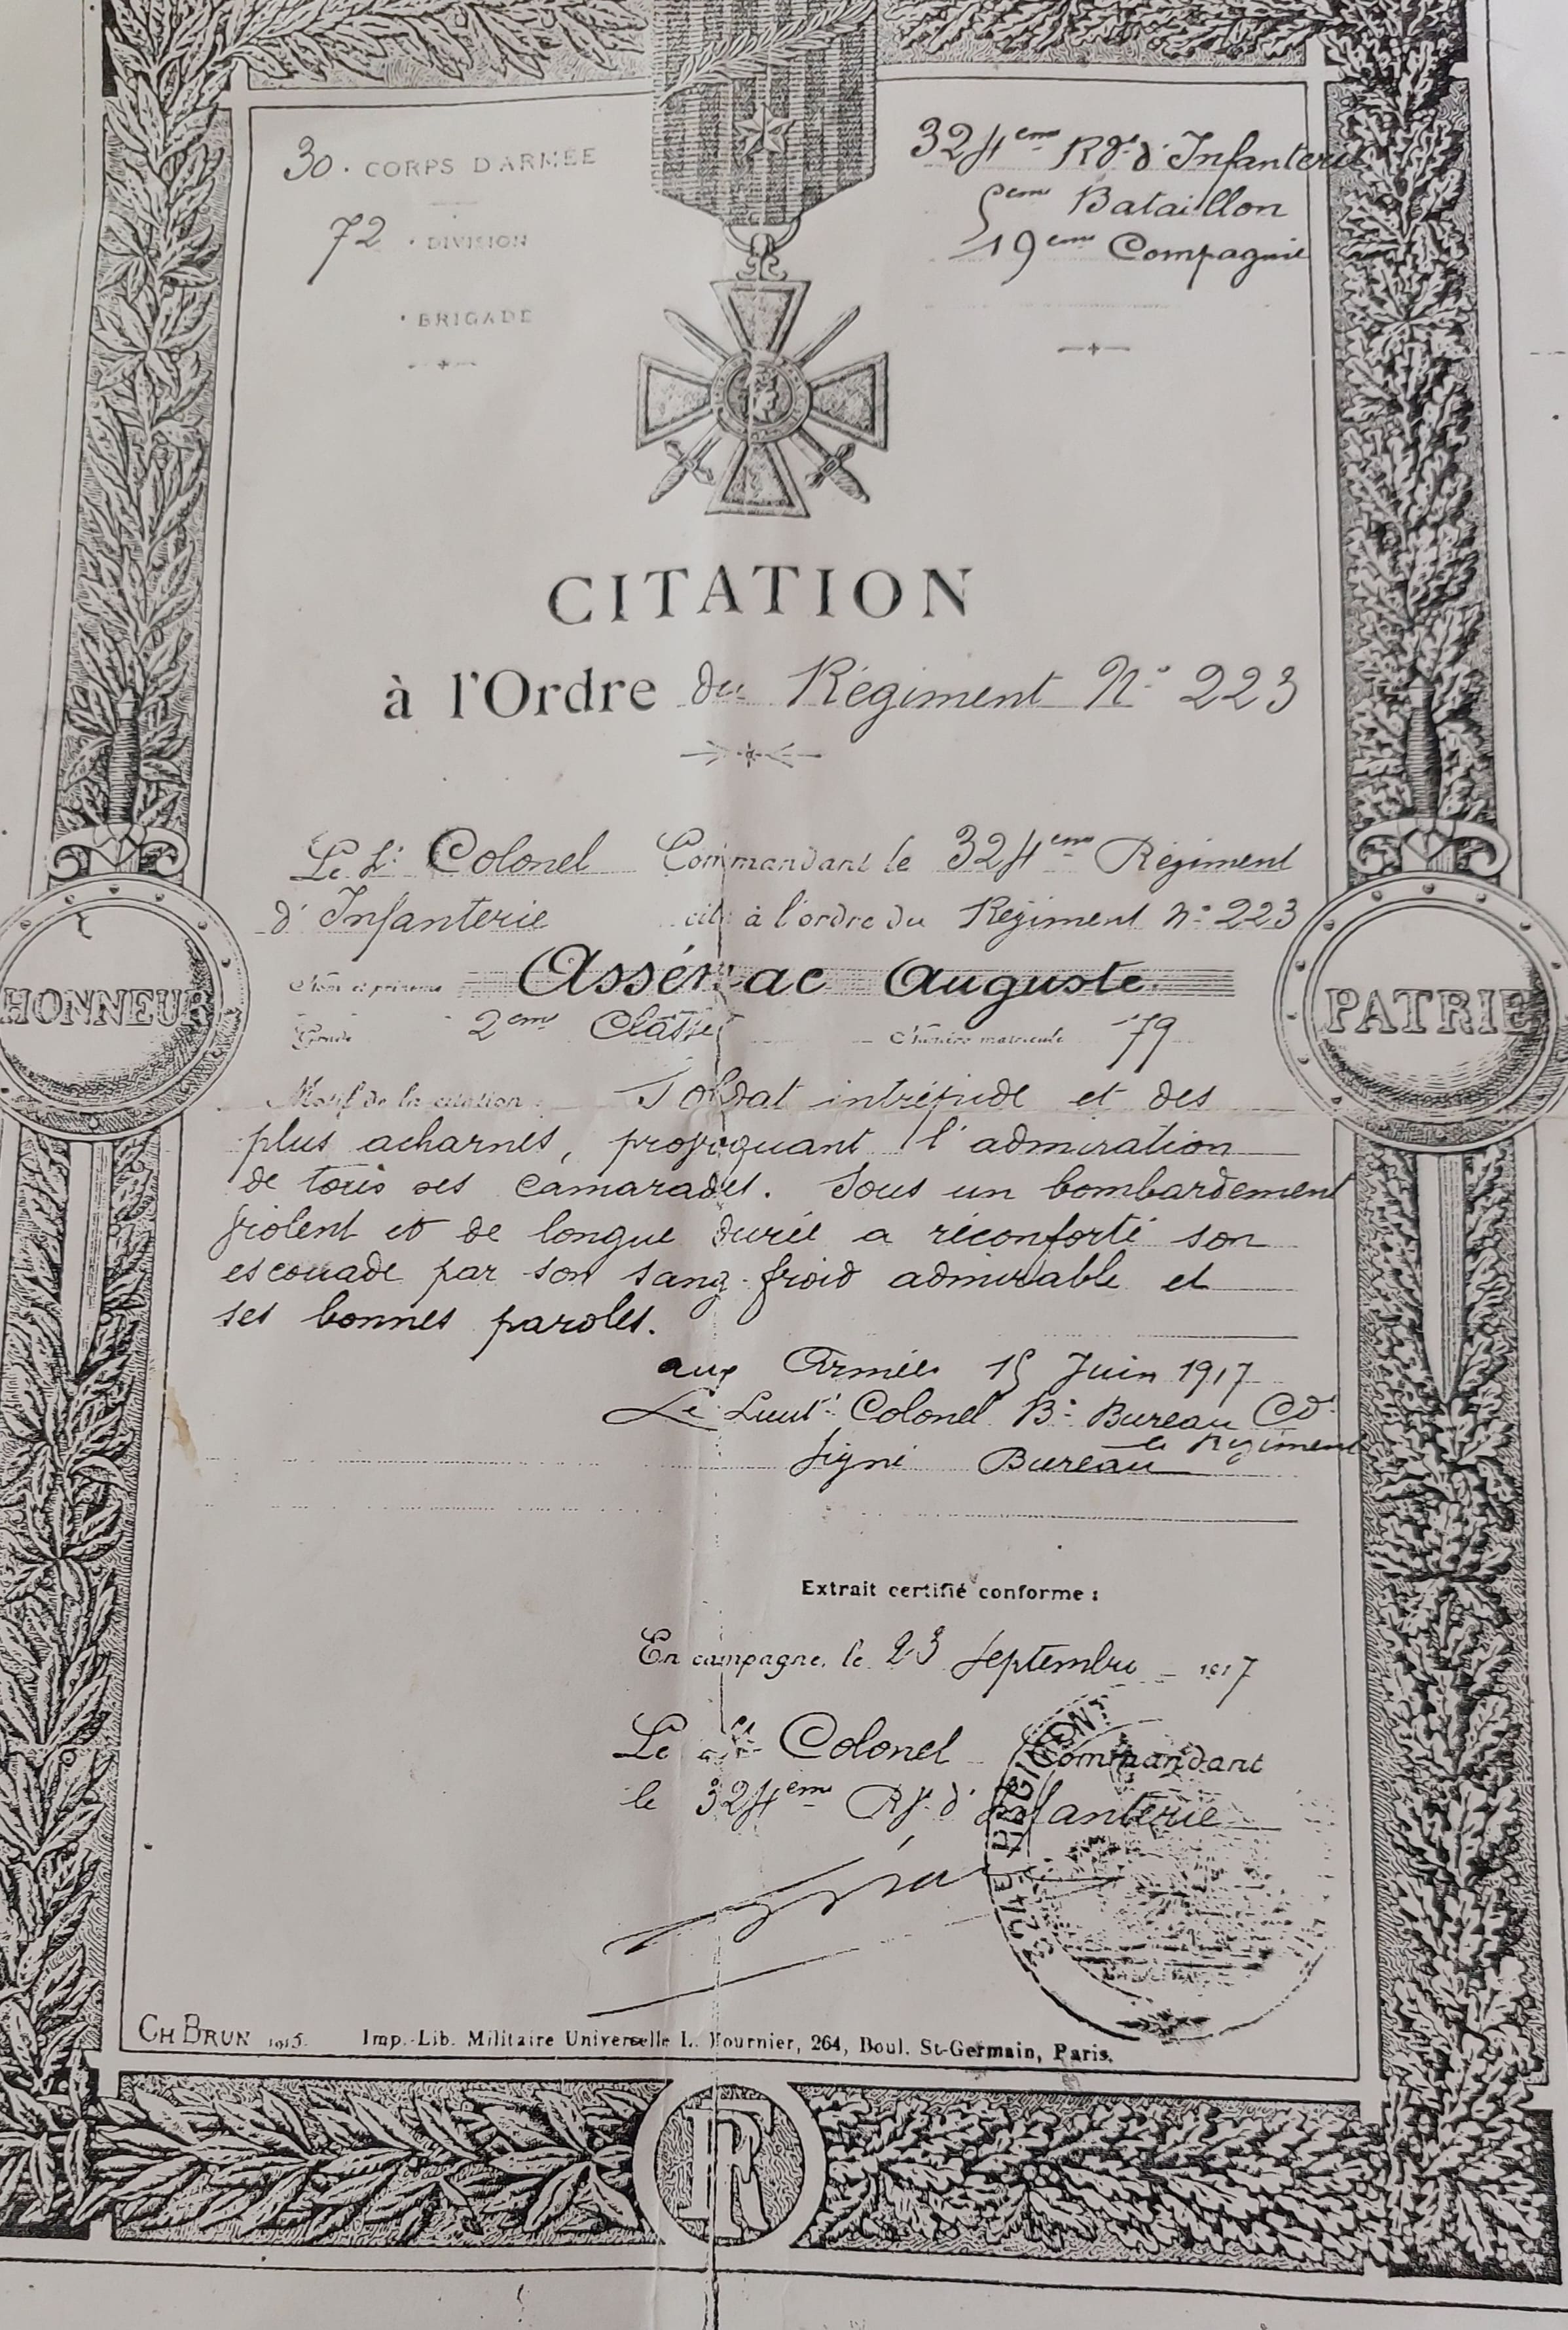 30. CORPS D'ARMÉE
72. DIVISION
. BRIGADE
324eme Rgt d'Infanterie
5eme Bataillon
19eme Compagnie
CITATION
à l'Ordre du Régiment N° 223
Le Lt Colonel Commandant le 324eme Régiment
d'Infanterie cite à l'ordre du Régiment N° 223
Nom et prénoms Assénac Auguste
Grade 2eme Classe Numéro matricule 79
Motif de la citation : Soldat intrépide et des
plus acharnés, provoquant l'admiration
de tous ses camarades. Sous un bombardement
violent et de longue durée a réconforté son
escouade par son sang-froid admirable et
ses bonnes paroles.
aux Armées 15 Juin 1917
Le Lieut. Colonel Bt Bureau Cdt
le Régiment
Signé Bureau
HONNEUR
PATRIE
Extrait certifié conforme :
En campagne, le 23 Septembre 1917
Le Lt Colonel Commandant
le 324eme Rgt d'Infanterie
324E REGIMENT
CH BRUN 1915. Imp.-Lib. Militaire Universelle L. Fournier, 264, Boul. St-Germain, Paris.
RF